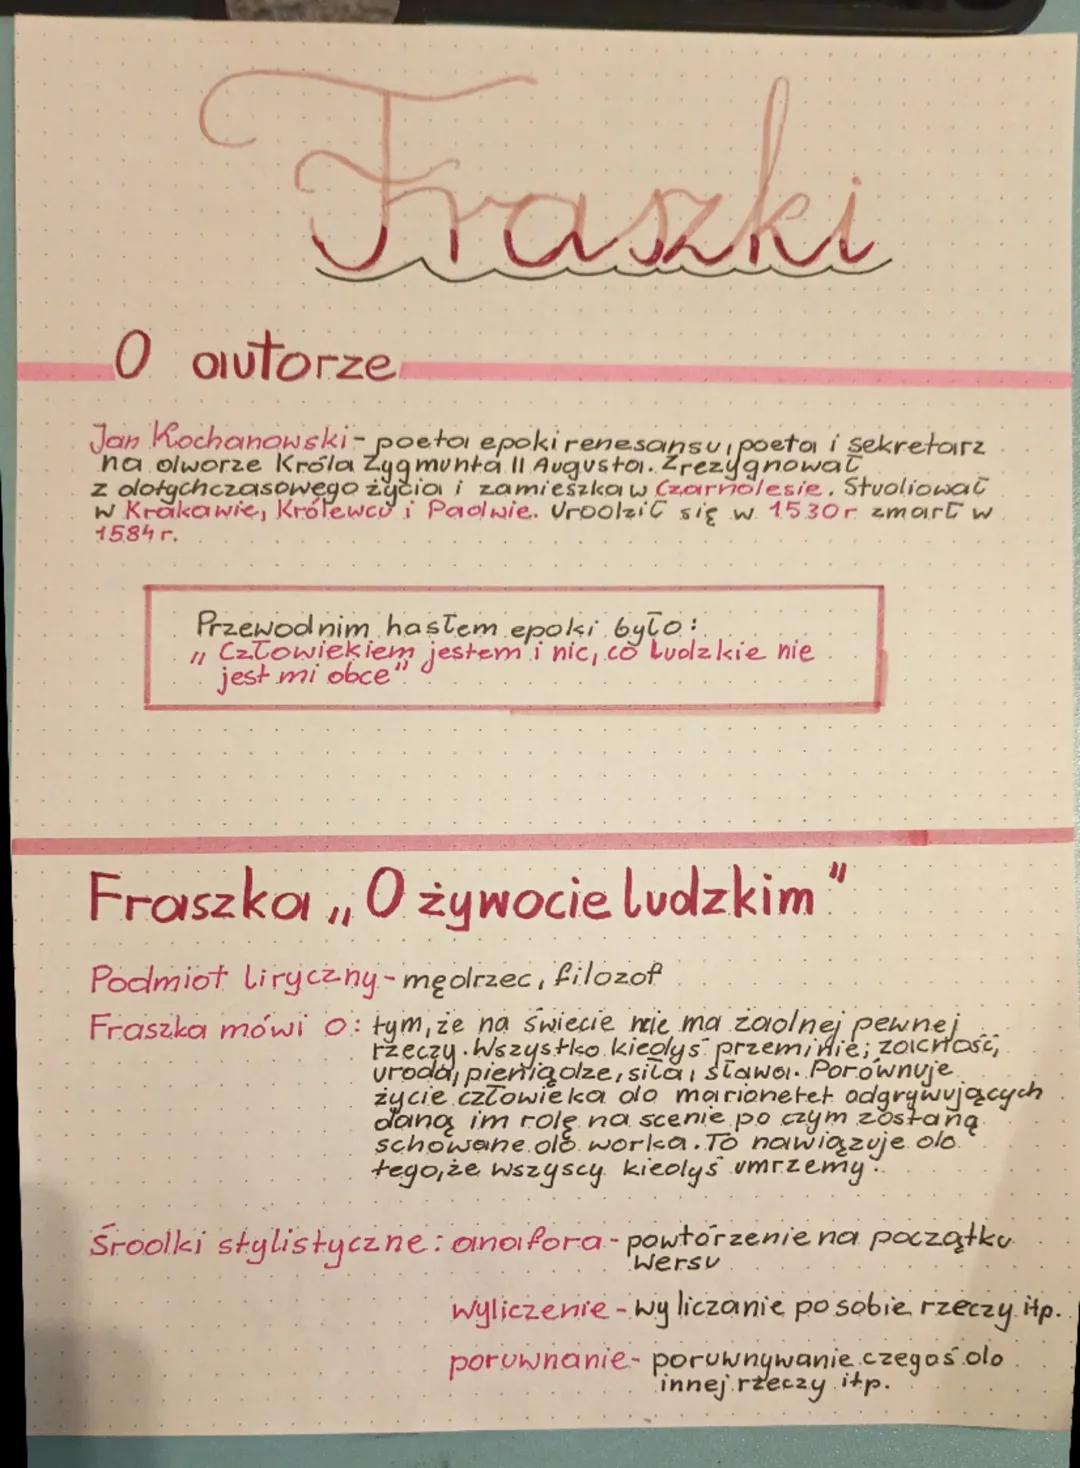 Fraszki
O autorze
Jan Kochanowski - poeta epoki renesansu, poeta i sekretarz
na dworze Króla Zygmunta II Augusta. Zrezygnował
z dotychczasowego życia i zamieszkał w Czarnolesie. Studiował
w Krakowie, Królewcu i Padwie. Urodził się w 1530r zmarł w
1584 r.
Przewodnim hasłem epoki było:
„Człowiekiem jestem i nic, co ludzkie nie
jest mi obce"
Fraszka „O żywocie ludzkim"
Podmiot liryczny - mędrzec, filozof
Fraszka mówi o: tym, że na świecie nie ma żadnej pewnej
rzeczy. Wszystko kiedyś przeminie; zacność,
uroda, pieniądze, siła, sława. Porównuje
życie człowieka do marionetet odgrywujących
daną im rolę na scenie po czym zostaną
schowane do worka. To nawiązuje do
tego, że wszyscy kiedyś umrzemy.
Środki stylistyczne: anafora - powtórzenie na początku
wersu
wyliczenie - wyliczanie po sobie rzeczy itp.
poruwnanie - poruwnywanie czegoś do
innej rzeczy itp.